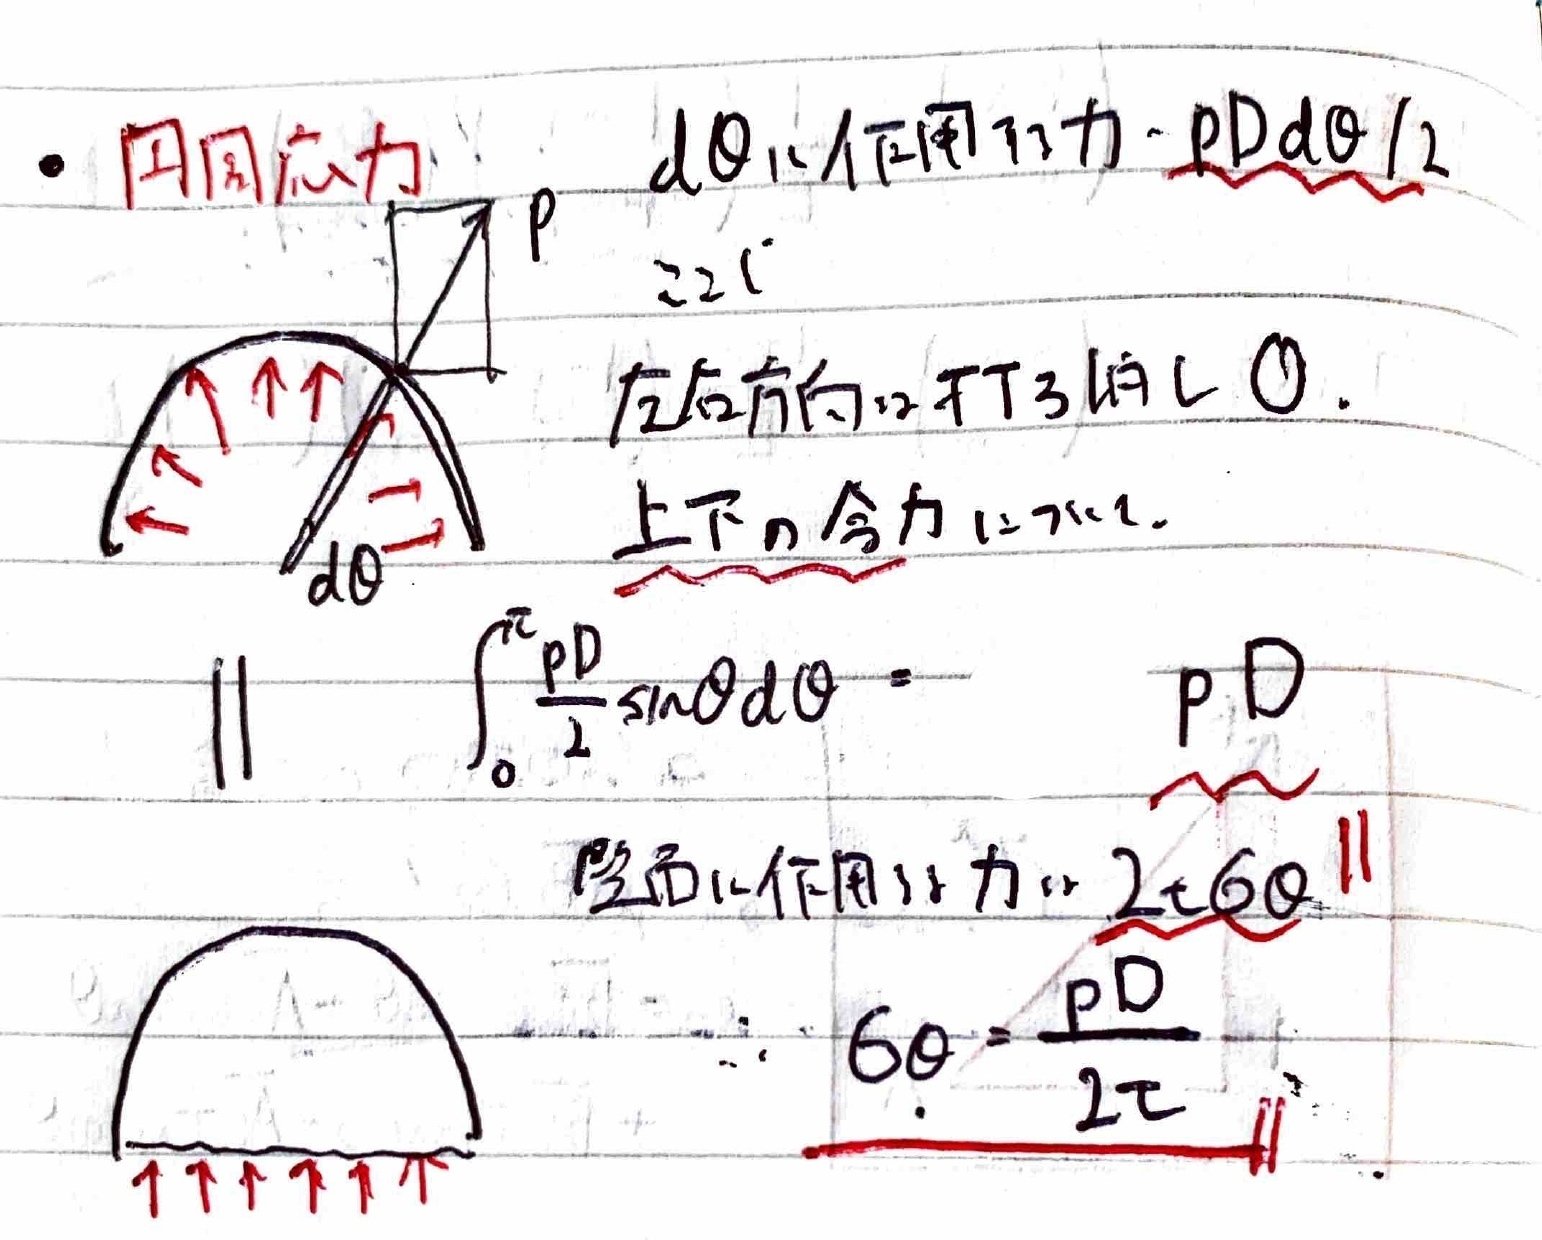 ・円周応力
dθに作用する力・pDdθ/2
p
ここで
左右方向は打ち消し0.
上下の合力について.
dθ
∫₀^π pD/2 sinθdθ = pD
||
壁面に作用する力は 2tσθ
||
∴ σθ = pD/2t